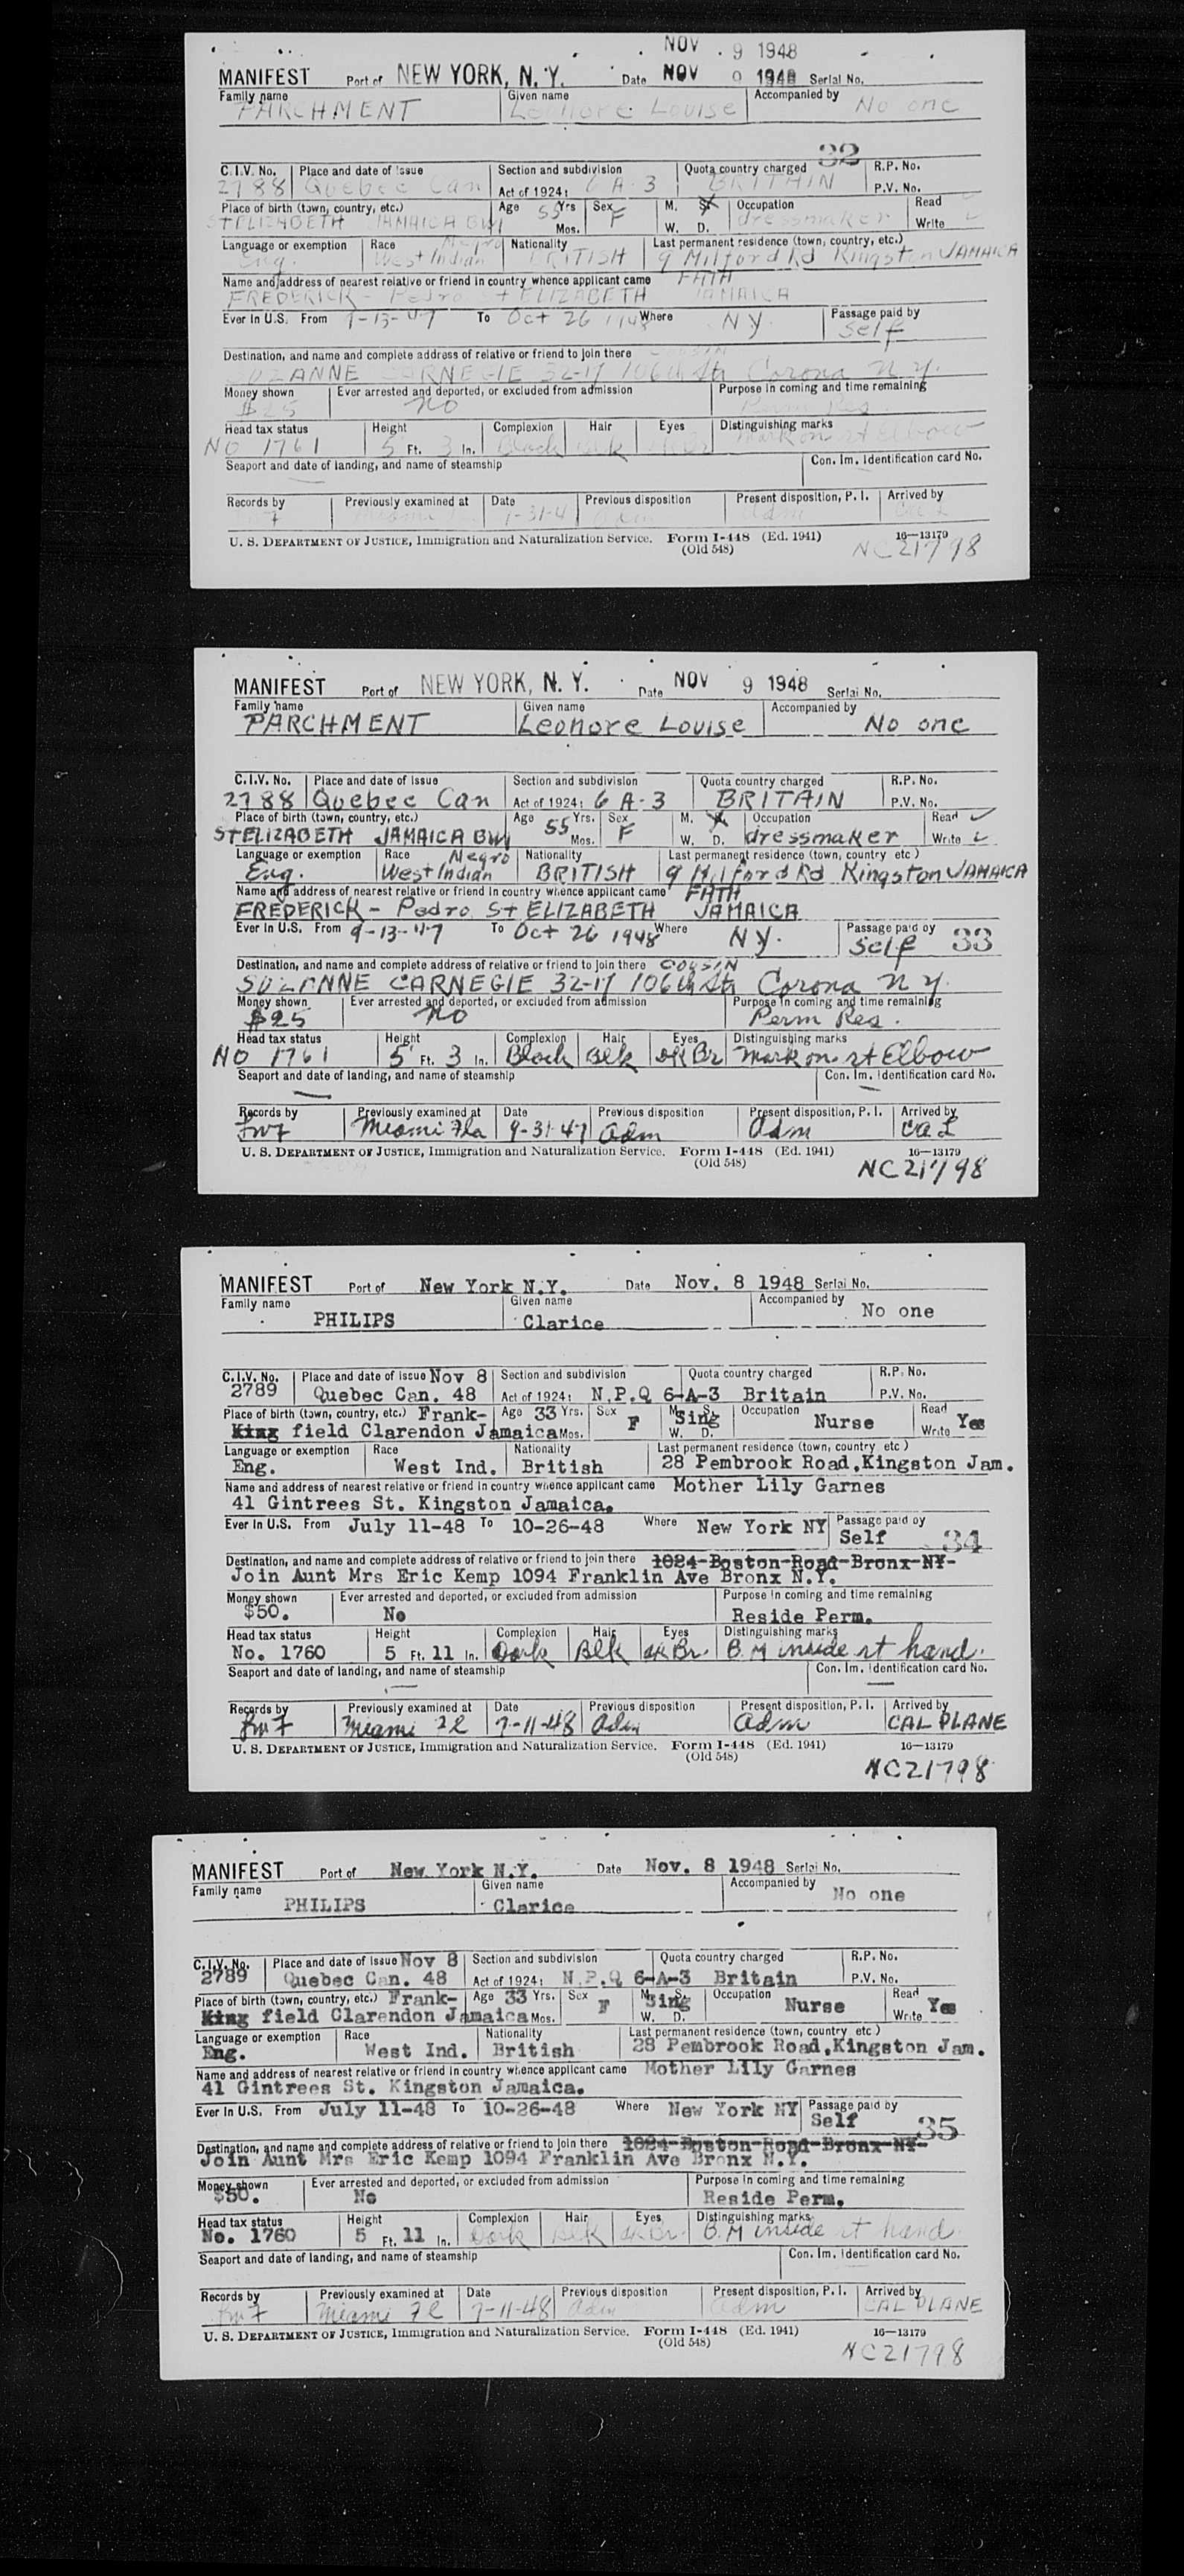 NOV 9 1948
MANIFEST Port of NEW YORK, N. Y. Date NOV 9 1948 Serial No.
Family name Given name Accompanied by
PARCHMENT Leonore Louise No one
32
C.I.V. No. Place and date of issue Section and subdivision Quota country charged R.P. No.
2788 Quebec Can Act of 1924: 6 A-3 BRITAIN P.V. No.
Place of birth (town, country, etc.) Age 55 Yrs Sex M. S. Occupation Read
ST ELIZABETH JAMAICA BWI Mos. F W. D. dressmaker Write
Language or exemption Race Negro Nationality Last permanent residence (town, country, etc.)
Eng. West Indian BRITISH 9 Milford Rd Kingston JAMAICA
Name and address of nearest relative or friend in country whence applicant came FATH
FREDERICK - Pedro St ELIZABETH JAMAICA
Ever in U.S. From 9-13-47 To Oct 26 1948 Where NY. Passage paid by
Self
Destination, and name and complete address of relative or friend to join there
SUZANNE CARNEGIE 32-17 106th St Corona N.Y.
Money shown Ever arrested and deported, or excluded from admission Purpose in coming and time remaining
$25 No Perm Res.
Head tax status Height Complexion Hair Eyes Distinguishing marks
NO 1761 5 Ft. 3 In. Black Blk Mark on rt Elbow
Seaport and date of landing, and name of steamship Con. Im. Identification card No.
Records by Previously examined at Date Previous disposition Present disposition, P. I. Arrived by
9-31-4 adm adm
U. S. DEPARTMENT OF JUSTICE, Immigration and Naturalization Service. Form I-448 (Ed. 1941) 16—13179
(Old 548) NC21798
MANIFEST Port of NEW YORK, N. Y. Date NOV 9 1948 Serial No.
Family name Given name Accompanied by
PARCHMENT Leonore Louise No one
C.I.V. No. Place and date of issue Section and subdivision Quota country charged R.P. No.
2788 Quebec Can Act of 1924: 6 A-3 BRITAIN P.V. No.
Place of birth (town, country, etc.) Age 55 Yrs. Sex M. S. Occupation Read
ST ELIZABETH JAMAICA BWI Mos. F W. D. dressmaker Write
Language or exemption Race Negro Nationality Last permanent residence (town, country etc)
Eng. West Indian BRITISH 9 Milford Rd Kingston JAMAICA
Name and address of nearest relative or friend in country whence applicant came FATH
FREDERICK - Pedro St ELIZABETH JAMAICA
Ever in U.S. From 9-13-47 To Oct 26 1948 Where NY. Passage paid by
Self 33
Destination, and name and complete address of relative or friend to join there COUSIN
SUZANNE CARNEGIE 32-17 106th St Corona N.Y.
Money shown Ever arrested and deported, or excluded from admission Purpose in coming and time remaining
$25 No Perm Res.
Head tax status Height Complexion Hair Eyes Distinguishing marks
NO 1761 5 Ft. 3 In. Black Blk dk Br Mark on rt Elbow
Seaport and date of landing, and name of steamship Con. Im. Identification card No.
Records by Previously examined at Date Previous disposition Present disposition, P. I. Arrived by
Miami Fla 9-31-47 adm adm Cal
U. S. DEPARTMENT OF JUSTICE, Immigration and Naturalization Service. Form I-448 (Ed. 1941) 16—13179
(Old 548) NC21798
MANIFEST Port of New York N.Y. Date Nov. 8 1948 Serial No.
Family name Given name Accompanied by
PHILIPS Clarice No one
C.I.V. No. Place and date of issue Nov 8 Section and subdivision Quota country charged R.P. No.
2789 Quebec Can. 48 Act of 1924: N.P.Q 6-A-3 Britain P.V. No.
Place of birth (town, country, etc.) Frank- Age 33 Yrs. Sex M. S. Occupation Read
King field Clarendon Jamaica Mos. F Sing W. D. Nurse Write Yes
Language or exemption Race Nationality Last permanent residence (town, country etc)
Eng. West Ind. British 28 Pembrook Road,Kingston Jam.
Name and address of nearest relative or friend in country whence applicant came Mother Lily Garnes
41 Gintrees St. Kingston Jamaica.
Ever in U.S. From July 11-48 To 10-26-48 Where New York NY Passage paid by
Self 34
Destination, and name and complete address of relative or friend to join there 1024-Boston-Road-Bronx-NY-
Join Aunt Mrs Eric Kemp 1094 Franklin Ave Bronx N.Y.
Money shown Ever arrested and deported, or excluded from admission Purpose in coming and time remaining
$50. No Reside Perm.
Head tax status Height Complexion Hair Eyes Distinguishing marks
No. 1760 5 Ft. 11 In. Dark Blk dk Br. B.M inside rt hand.
Seaport and date of landing, and name of steamship Con. Im. Identification card No.
Records by Previously examined at Date Previous disposition Present disposition, P. I. Arrived by
Miami Fl 7-11-48 adm adm CAL PLANE
U. S. DEPARTMENT OF JUSTICE, Immigration and Naturalization Service. Form I-448 (Ed. 1941) 16—13179
(Old 548) NC21798
MANIFEST Port of New York N.Y. Date Nov. 8 1948 Serial No.
Family name Given name Accompanied by
PHILIPS Clarice No one
C.I.V. No. Place and date of issue Nov 8 Section and subdivision Quota country charged R.P. No.
2789 Quebec Can. 48 Act of 1924: N.P.Q 6-A-3 Britain P.V. No.
Place of birth (town, country, etc.) Frank- Age 33 Yrs. Sex M. S. Occupation Read
King field Clarendon Jamaica Mos. F Sing W. D. Nurse Write Yes
Language or exemption Race Nationality Last permanent residence (town, country etc)
Eng. West Ind. British 28 Pembrook Road,Kingston Jam.
Name and address of nearest relative or friend in country whence applicant came Mother Lily Garnes
41 Gintrees St. Kingston Jamaica.
Ever in U.S. From July 11-48 To 10-26-48 Where New York NY Passage paid by
Self 35
Destination, and name and complete address of relative or friend to join there 1024-Boston-Road-Bronx-NY-
Join Aunt Mrs Eric Kemp 1094 Franklin Ave Bronx N.Y.
Money shown Ever arrested and deported, or excluded from admission Purpose in coming and time remaining
$50. No Reside Perm.
Head tax status Height Complexion Hair Eyes Distinguishing marks
No. 1760 5 Ft. 11 In. Dark Blk dk Br. B.M inside rt hand.
Seaport and date of landing, and name of steamship Con. Im. Identification card No.
Records by Previously examined at Date Previous disposition Present disposition, P. I. Arrived by
Miami Fl 7-11-48 adm adm CAL PLANE
U. S. DEPARTMENT OF JUSTICE, Immigration and Naturalization Service. Form I-448 (Ed. 1941) 16—13179
(Old 548) NC21798